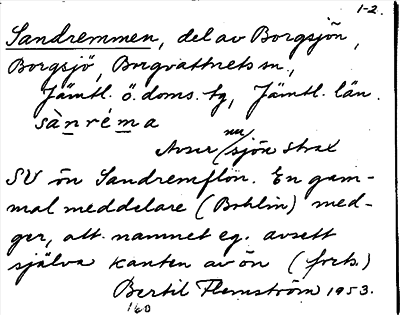 1-2.
Sandremmen, del av Borgsjön,
Borgsjö, Borgvattnets sn.,
Jämtl. ö. doms. tg, Jämtl. län.
sànréma
nu
Avser / sjön strax
SV ön Sandremflon. En gam-
mal meddelare (Bohlin) med-
ger, att namnet eg. avsett
själva kanten av ön (forts.)
Bertil Flemström 1953.
160